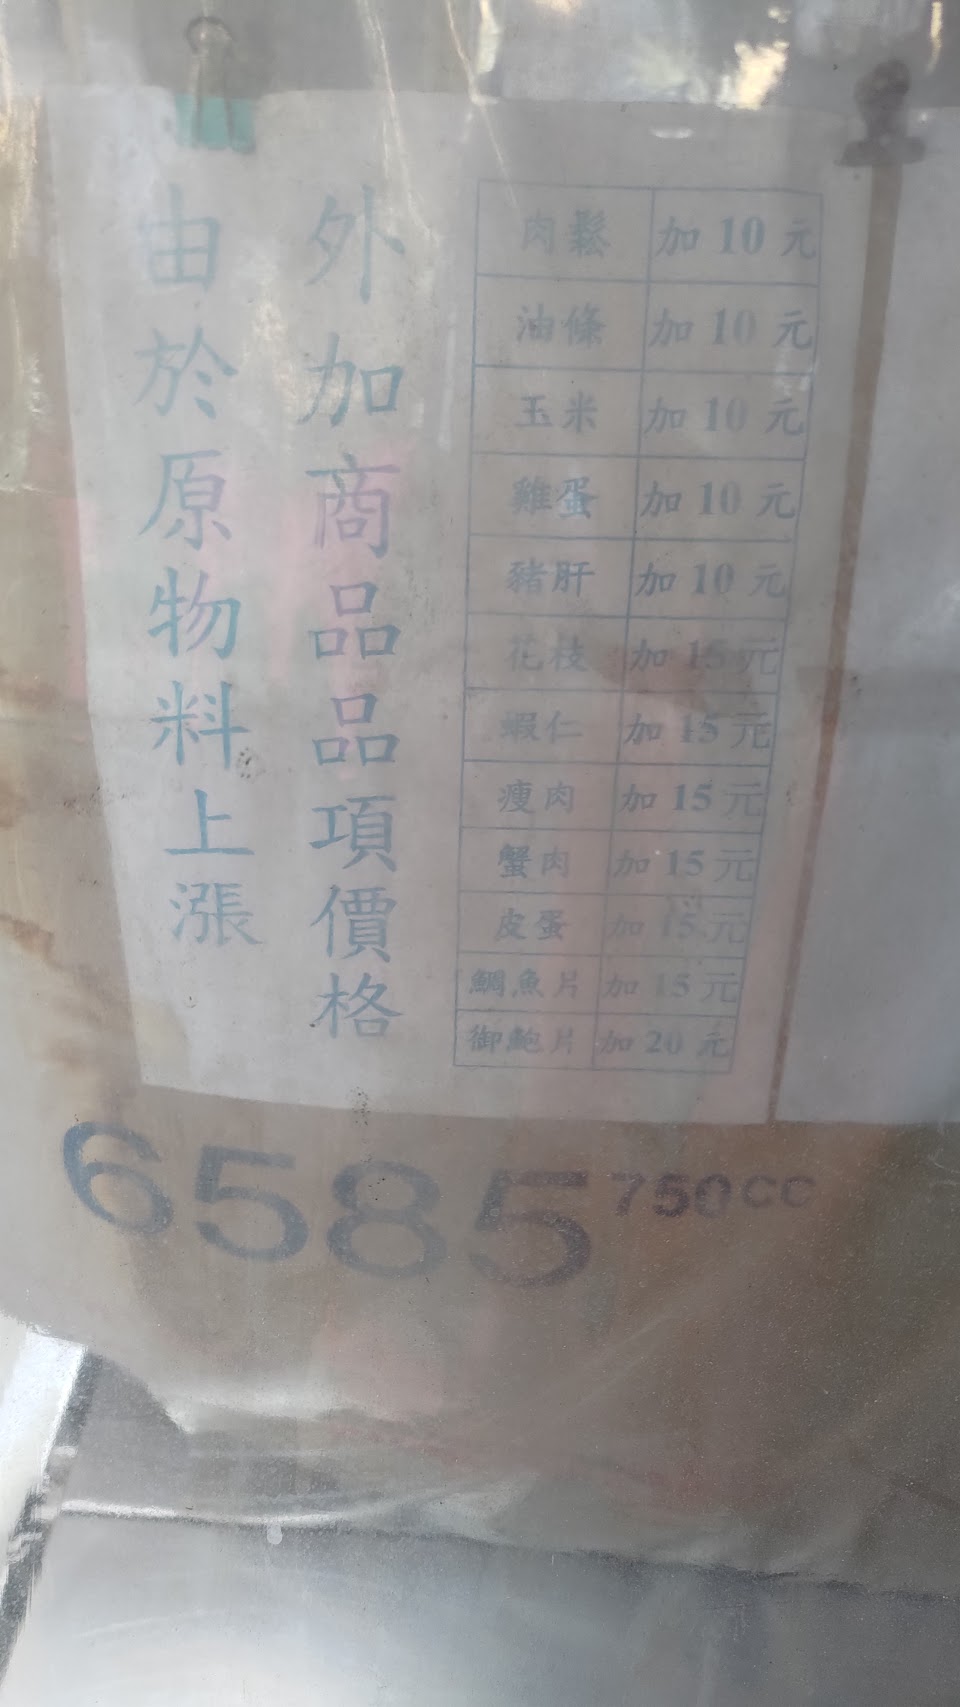 由於原物料上漲
外加商品品項價格
肉鬆 加 10 元
油條 加 10 元
玉米 加 10 元
雞蛋 加 10 元
豬肝 加 10 元
花枝 加 15 元
蝦仁 加 15 元
瘦肉 加 15 元
蟹肉 加 15 元
皮蛋 加 15 元
鯛魚片 加 15 元
御鮑片 加 20 元
6585 750CC